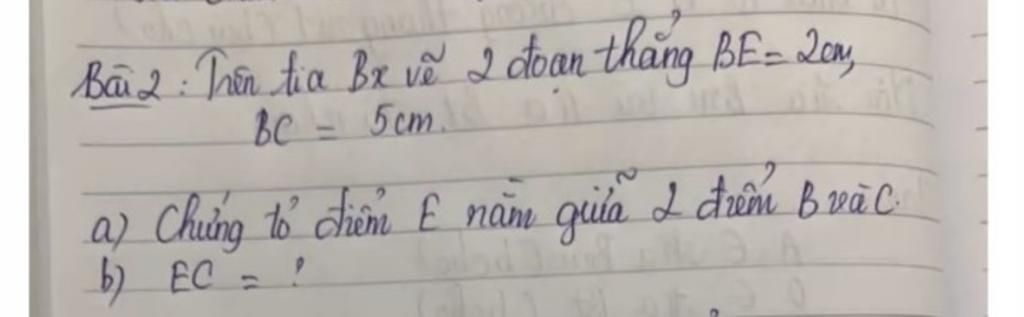 Bài 2 : Trên tia Bx vẽ 2 đoạn thẳng BE = 2cm,
BC = 5cm.
a) Chứng tỏ điểm E nằm giữa 2 điểm B và C.
b) EC = ?